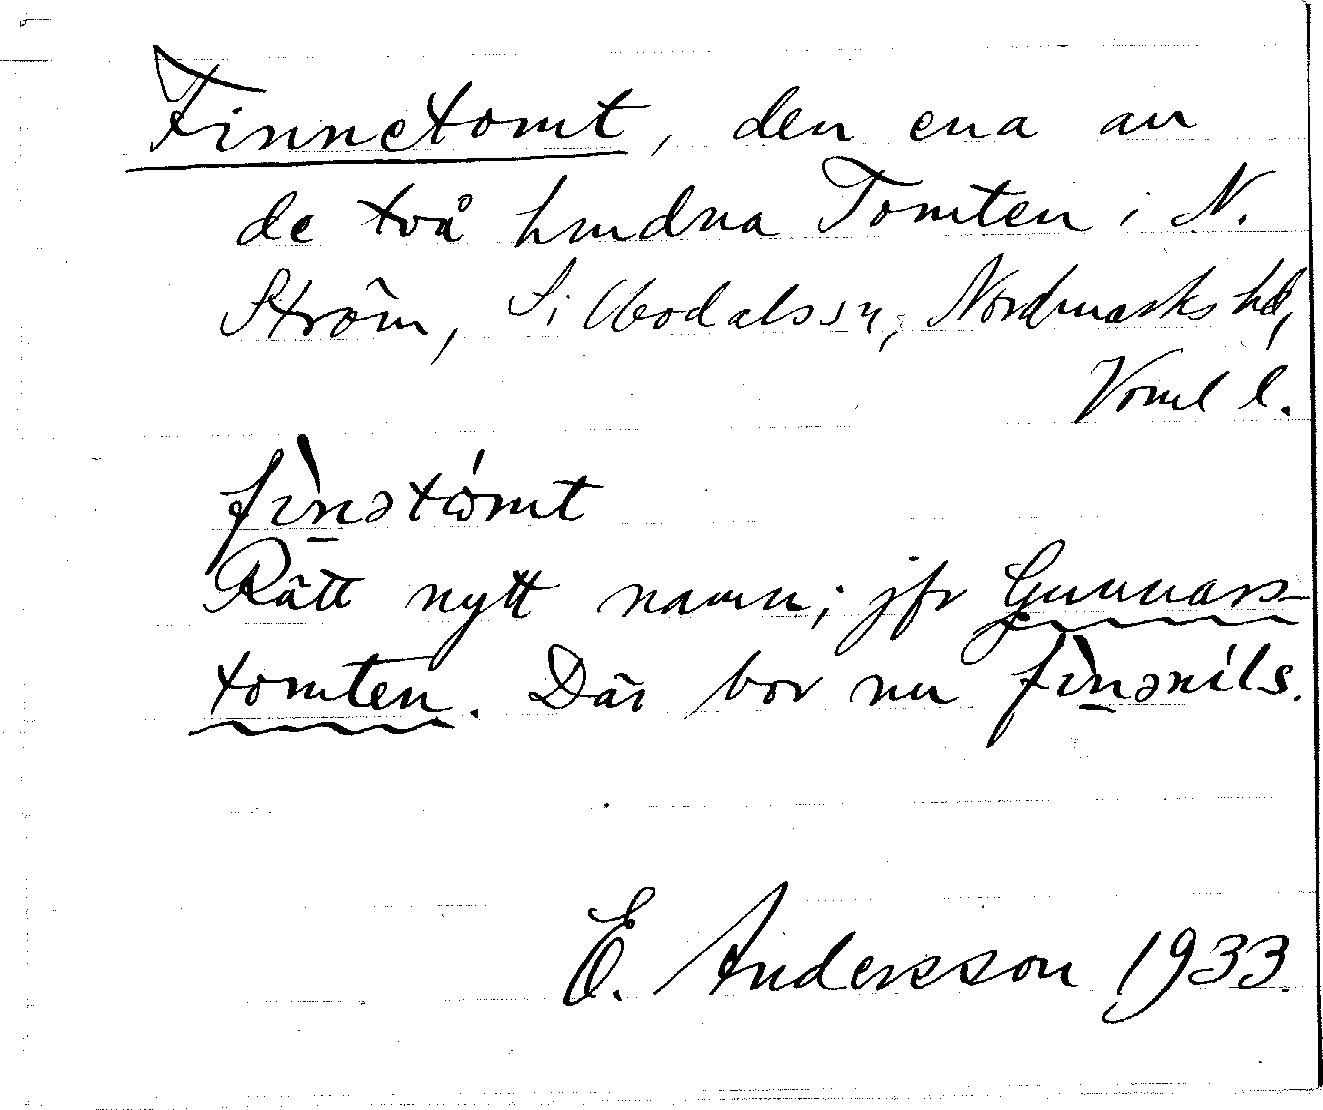 Finnetomt, den ena av
de två hmdna Tomten i N.
Ström, Sillbodals sn, Nordmarks hd,
Vrml l.
fı̀nətómt
Rätt nytt namn; jfr Gunnars-
tomten. Där bor nu fı̀nənils.
E. Andersson 1933.